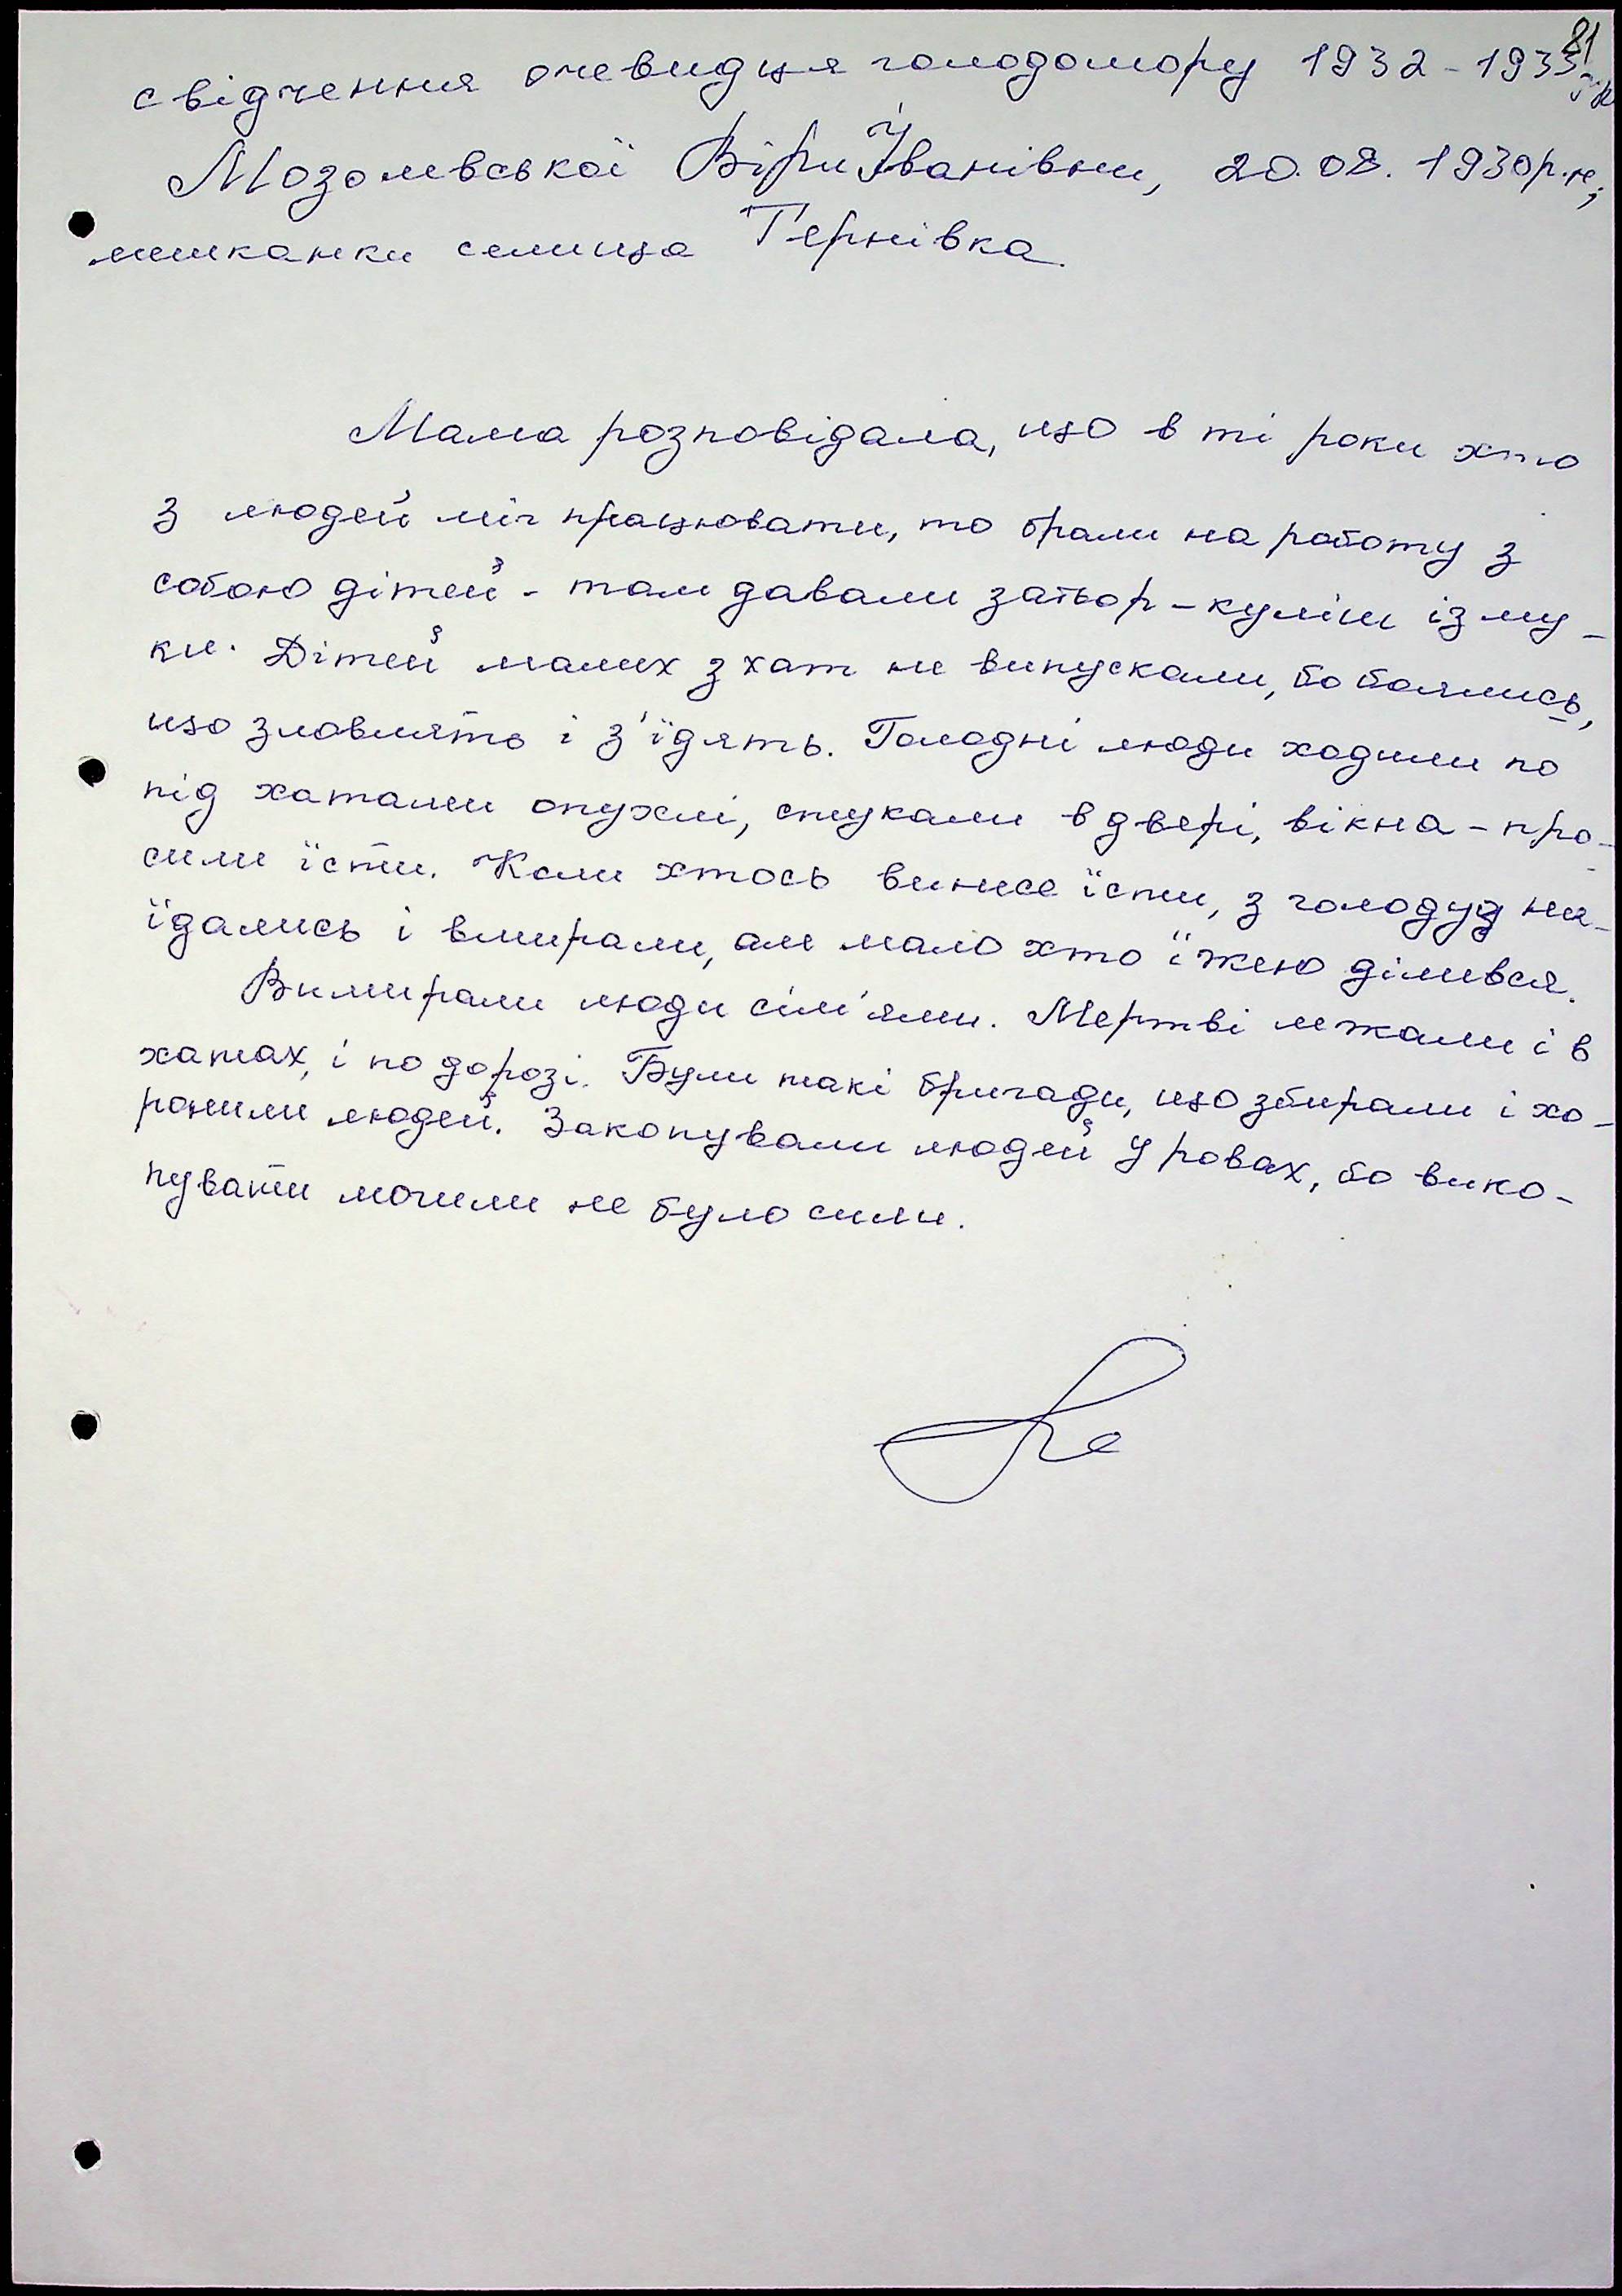 81
свідчення очевидця голодомору 1932-1933р.р
Мозолевської Віри Іванівни, 20.08.1930р.н;
мешканки селища Тернівка.
Мама розповідала, що в ті роки хто
з людей міг працювати, то брали на роботу з
собою дітей - там давали затьор - куліш із му-
ки. Дітей малих з хат не випускали, бо боялись,
що зловлять і з'їдять. Голодні люди ходили по
під хатами опухлі, стукали в двері, вікна - про-
сили їсти. Коли хтось винесе їсти, з голоду на-
їдались і вмирали, але мало хто їжею ділився.
Вимирали люди сім'ями. Мертві лежали і в
хатах, і по дорозі. Були такі бригади, що збирали і хо-
ронили людей. Закопували людей у ровах, бо вико-
пувати могили не було сили.